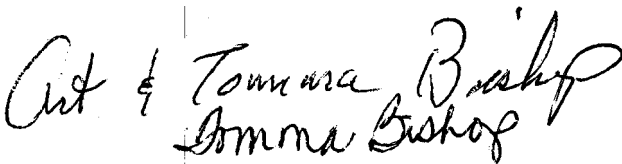 Art & Tommra Bishop
Tommona Bishop